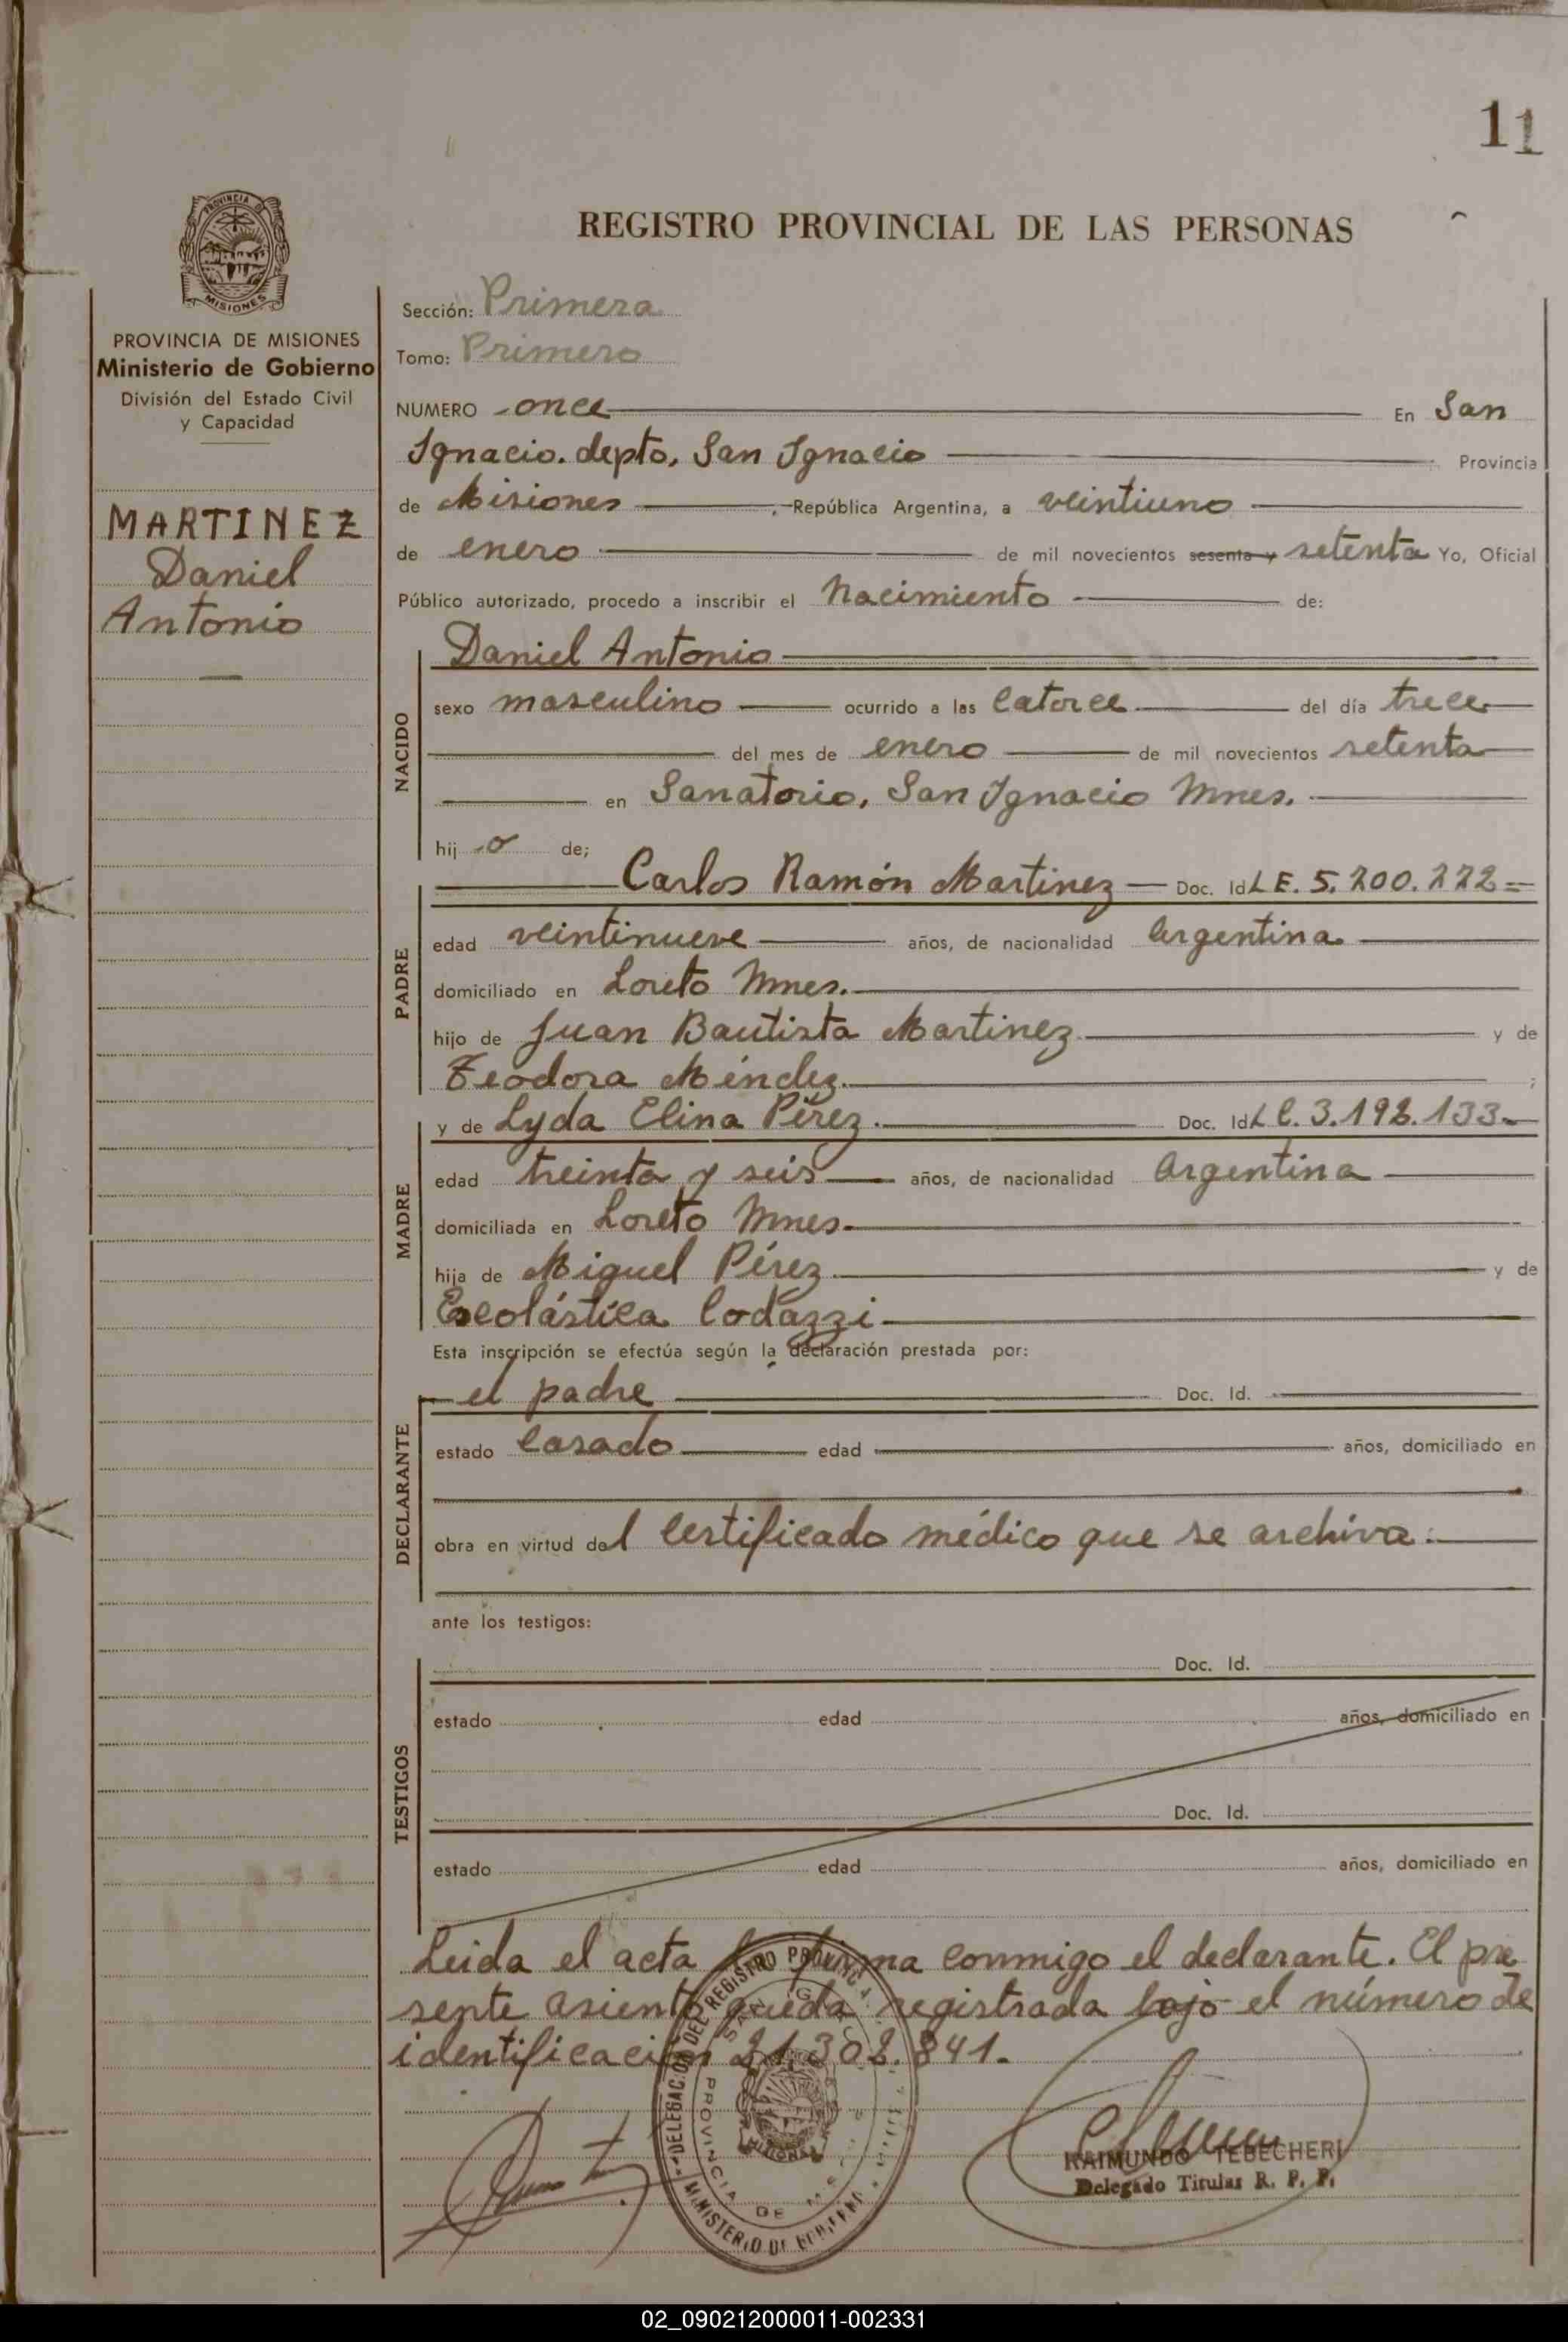 11
PROVINCIA DE
MISIONES
PROVINCIA DE MISIONES
Ministerio de Gobierno
División del Estado Civil
y Capacidad
MARTINEZ
Daniel
Antonio
REGISTRO PROVINCIAL DE LAS PERSONAS
Sección: Primera
Tomo: Primero
NUMERO once En San
Ignacio. depto, San Ignacio Provincia
de Misiones, República Argentina, a veintiuno
de enero de mil novecientos sesenta y setenta Yo, Oficial
Público autorizado, procedo a inscribir el Nacimiento de:
Daniel Antonio
NACIDO
sexo masculino ocurrido a las catorce del día trece
del mes de enero de mil novecientos setenta
en Sanatorio, San Ignacio Mnes.
hij o de;
Carlos Ramón Martinez Doc. Id. L E. 5.200.222=
PADRE
edad veintinueve años, de nacionalidad Argentina
domiciliado en Loreto Mnes.
hijo de Juan Bautista Martinez y de
Teodora Méndez ;
y de Lyda Elina Pérez. Doc. Id. L C. 3.192.133-
MADRE
edad treinta y seis años, de nacionalidad Argentina
domiciliada en Loreto Mnes.
hija de Miguel Pérez y de
Escolástica Codazzi
Esta inscripción se efectúa según la declaración prestada por:
el padre Doc. Id.
DECLARANTE
estado casado edad años, domiciliado en
obra en virtud del certificado médico que se archiva.
ante los testigos:
Doc. Id.
TESTIGOS
estado edad años, domiciliado en
Doc. Id.
estado edad años, domiciliado en
Leida el acta la firma conmigo el declarante. El pre
sente asiento queda registrada bajo el número de
identificación 21.302.841.
DELEGAC. ON DEL REGISTRO PROVINC
PROVINCIA DE
MISIONES
MINISTERIO DE GOBIERNO
RAIMUNDO TEBECHERI
Delegado Titular R. P. P.
02_090212000011-002331